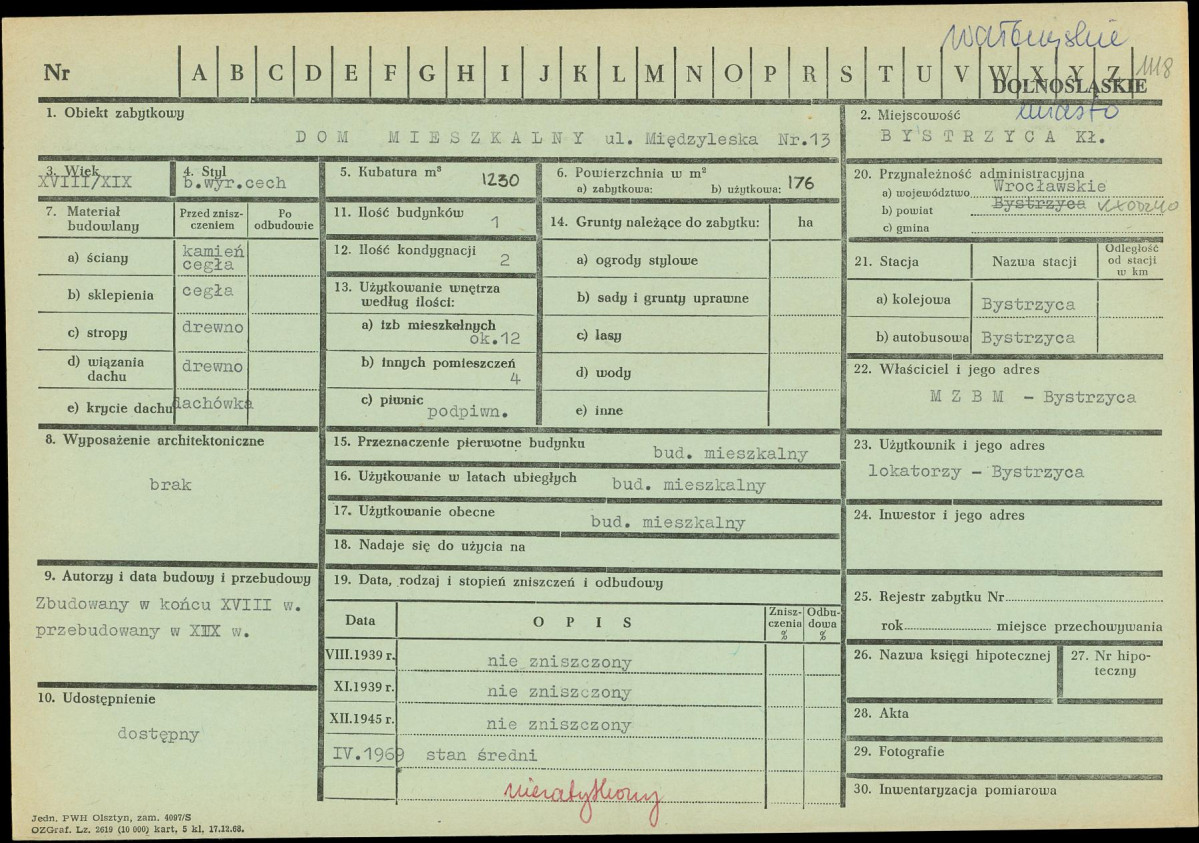 wałbrzyskie
Nr A B C D E F G H I J K L M N O P R S T U V W X Y Z 1118
DOLNOŚLĄSKIE
miasto
1. Obiekt zabytkowy
DOM MIESZKALNY ul. Międzyleska Nr.13
2. Miejscowość
BYSTRZYCA Kł.
3. Wiek
XVIII/XIX
4. Styl
b.wyr.cech
5. Kubatura m³ 1230
6. Powierzchnia w m²
a) zabytkowa: b) użytkowa: 176
20. Przynależność administracyjna
a) województwo Wrocławskie
b) powiat Bystrzyca KŁODZKO
c) gmina
7. Materiał budowlany
Przed zniszczeniem
Po odbudowie
a) ściany kamień cegła
b) sklepienia cegła
c) stropy drewno
d) wiązania dachu drewno
e) krycie dachu dachówka
11. Ilość budynków 1
12. Ilość kondygnacji 2
13. Użytkowanie wnętrza według ilości:
a) izb mieszkalnych ok.12
b) innych pomieszczeń 4
c) piwnic podpiwn.
14. Grunty należące do zabytku: ha
a) ogrody stylowe
b) sady i grunty uprawne
c) lasy
d) wody
e) inne
21. Stacja Nazwa stacji Odległość od stacji w km
a) kolejowa Bystrzyca
b) autobusowa Bystrzyca
22. Właściciel i jego adres
M Z B M - Bystrzyca
8. Wyposażenie architektoniczne
brak
15. Przeznaczenie pierwotne budynku bud. mieszkalny
16. Użytkowanie w latach ubiegłych bud. mieszkalny
17. Użytkowanie obecne bud. mieszkalny
18. Nadaje się do użycia na
23. Użytkownik i jego adres
lokatorzy - Bystrzyca
24. Inwestor i jego adres
9. Autorzy i data budowy i przebudowy
Zbudowany w końcu XVIII w.
przebudowany w XIX w.
10. Udostępnienie
dostępny
19. Data, rodzaj i stopień zniszczeń i odbudowy
Data OPIS Zniszczenia % Odbudowa %
VIII.1939 r. nie zniszczony
XI.1939 r. nie zniszczony
XII.1945 r. nie zniszczony
IV.1969 stan średni
niezabytkowy
25. Rejestr zabytku Nr
rok miejsce przechowywania
26. Nazwa księgi hipotecznej
27. Nr hipoteczny
28. Akta
29. Fotografie
30. Inwentaryzacja pomiarowa
Jedn. PWH Olsztyn, zam. 4097/S
OZGraf. Lz. 2619 (10 000) kart. 5 kl. 17.12.68.